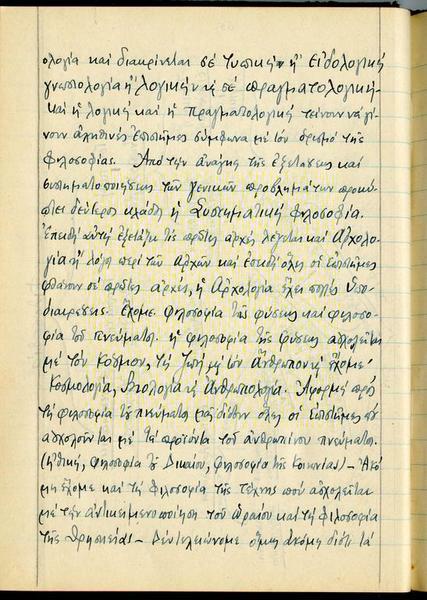 ολογία και διακρίνεται σέ τυπικήν ἤ εἰδολογική
γνωσιολογία ἤ λογικήν κ σέ πραγματολογική-
καί ἡ λογική καί ἡ πραγματολογική τείνουν νά γί-
νουν ἀληθινές ἐπιστῆμες σύμφωνα μέ τόν ὁρισμό τῆς
φιλοσοφίας. Ἀπό τήν ἀνάγκη τῆς ἐξετάσεως καί
συστηματοποιήσεως τῶν γενικῶν προβλημάτων προκύ-
πτει δεύτερος κλάδος ἡ Συστηματική φιλοσοφία.
Ἐπειδή αὐτή ἐξετάζει τίς πρῶτες ἀρχές λέγεται καί Ἀρχολο-
γία ἤ λόγος περί τῶν Ἀρχῶν καί ἐπειδή ὅλες οἱ ἐπιστῆμες
φθάνουν σέ πρῶτες ἀρχές, ἡ Ἀρχολογία ἔχει πολλές ὑπο-
διαιρέσεις. Ἔχομε φιλοσοφία τῆς φύσεως καί φιλοσο-
φία τοῦ πνεύματος. ἡ φιλοσοφία τῆς φύσεως ἀσχολεῖται
μέ τόν κόσμον, τή ζωή κ τόν ἄνθρωπον κ ἔχομε
Κοσμολογία, Βιολογία κ Ἀνθρωπολογία. Ἀφορμή πρός
τή φιλοσοφία τοῦ πνεύματος μᾶς δίδουν ὅλες οἱ ἐπιστῆμες πού
ἀσχολοῦνται μέ τά προϊόντα τοῦ ἀνθρωπίνου πνεύματος.
(ἠθική, φιλοσοφία τοῦ Δικαίου, φιλοσοφία τῆς Κοινωνίας) - Ἀκό
μη ἔχομε καί τή φιλοσοφία τῆς τέχνης πού ἀσχολεῖται
μέ τήν ἀντικειμενοποίηση τοῦ ὡραίου καί τή φιλοσοφία
τῆς Θρησκείας - Δέν τελειώνομε ὅμως ἀκόμη διότι τά